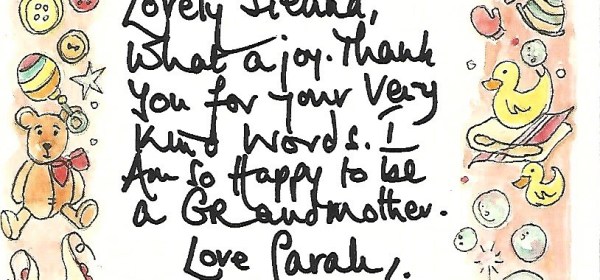 Lovely Ileana,
What a joy. Thank
you for your Very
Kind Words. I
Am So Happy to be
a GRandmother.
Love Sarah,.